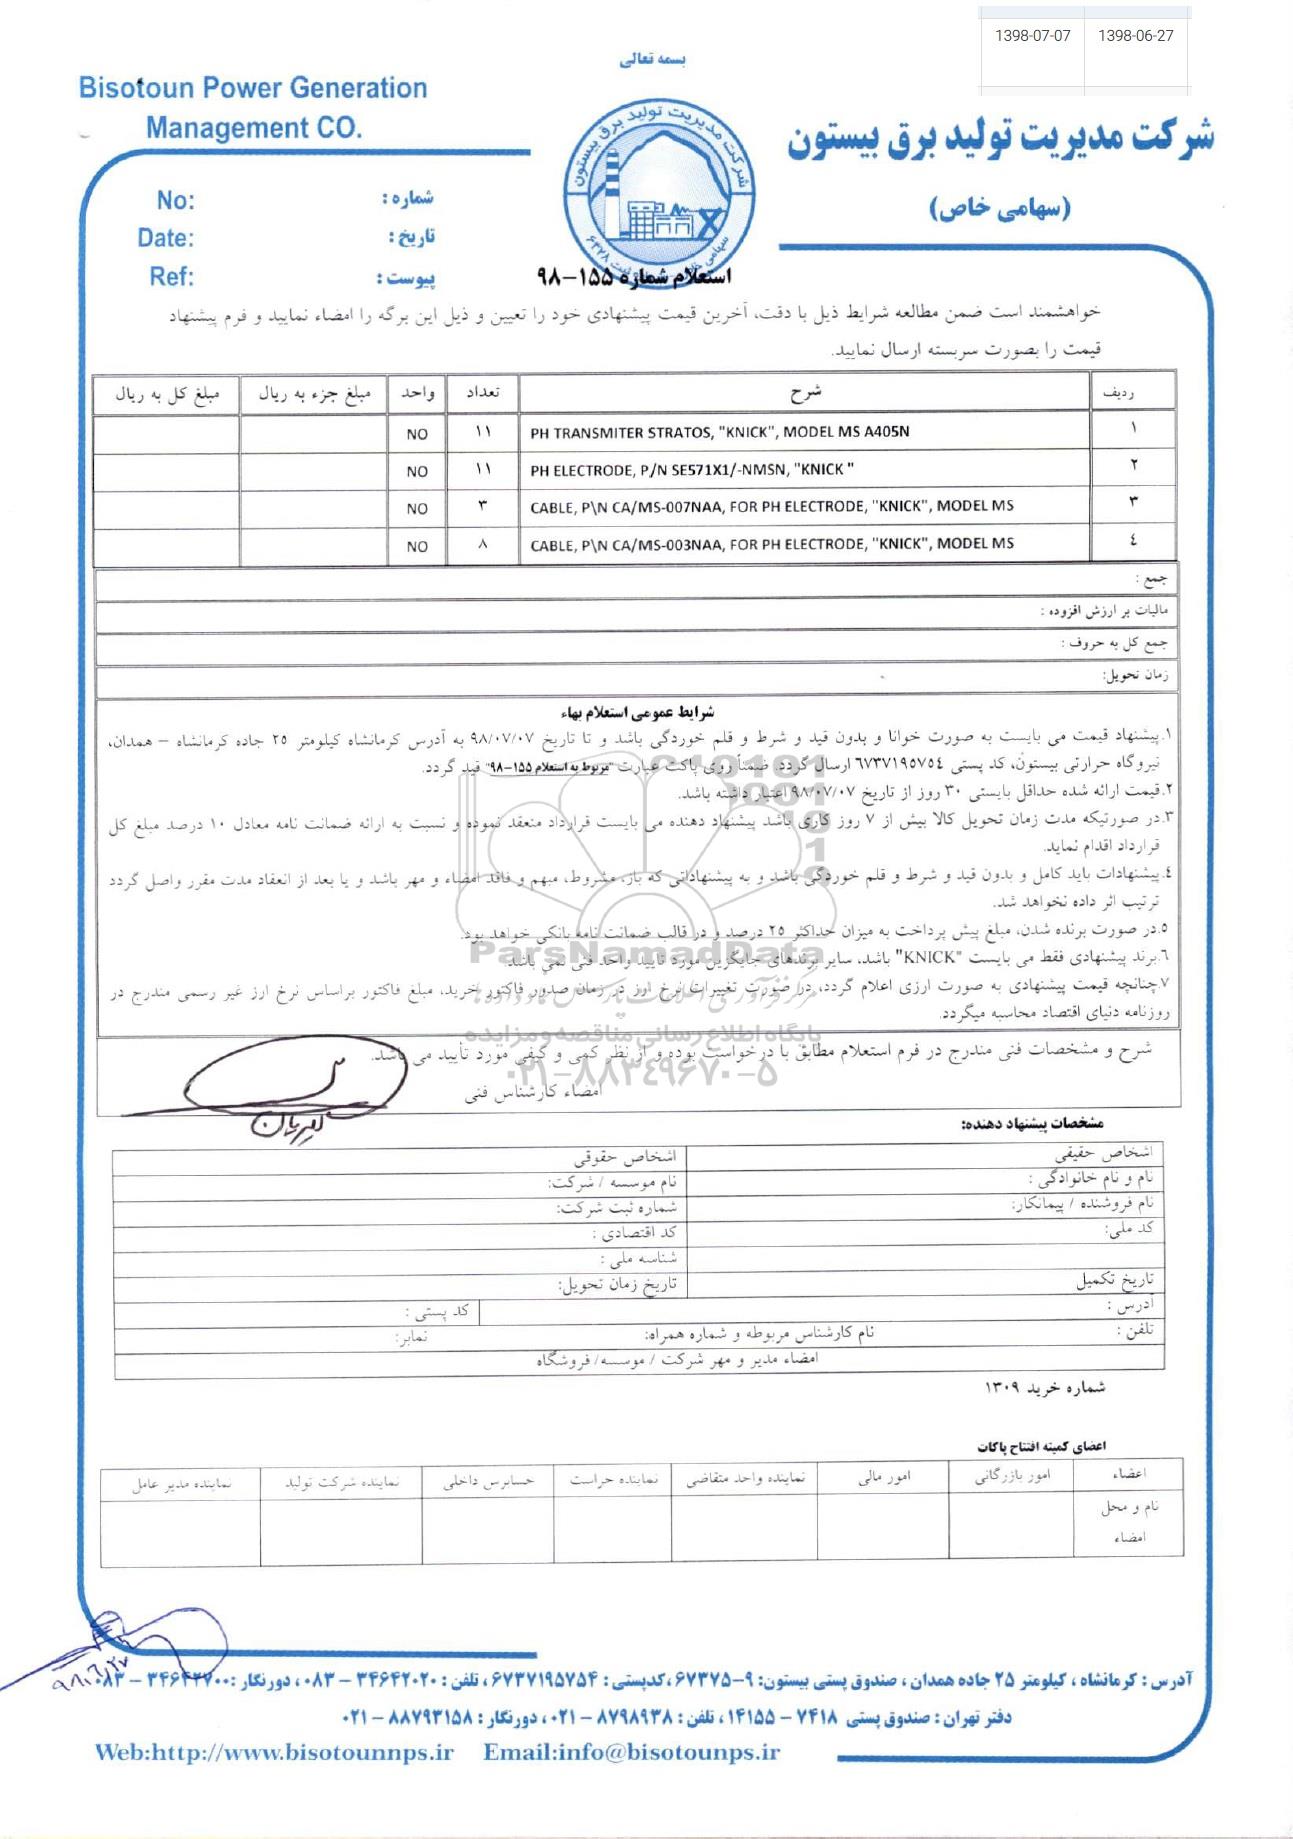 1398-07-07 1398-06-27
بسمه تعالی
Bisotoun Power Generation
Management CO.
شرکت مدیریت تولید برق بیستون
(سهامی خاص)
No: شماره :
Date: تاریخ :
Ref: پیوست :
استعلام شماره ۱۵۵-۹۸
خواهشمند است ضمن مطالعه شرایط ذیل با دقت، آخرین قیمت پیشنهادی خود را تعیین و ذیل این برگه را امضاء نمایید و فرم پیشنهاد
قیمت را بصورت سربسته ارسال نمایید.
ردیف شرح تعداد واحد مبلغ جزء به ریال مبلغ کل به ریال
۱ PH TRANSMITER STRATOS, "KNICK", MODEL MS A405N ۱۱ NO
۲ PH ELECTRODE, P/N SE571X1/-NMSN, "KNICK " ۱۱ NO
۳ CABLE, P\N CA/MS-007NAA, FOR PH ELECTRODE, "KNICK", MODEL MS ۳ NO
٤ CABLE, P\N CA/MS-003NAA, FOR PH ELECTRODE, "KNICK", MODEL MS ۸ NO
جمع :
مالیات بر ارزش افزوده :
جمع کل به حروف :
زمان تحویل:
شرایط عمومی استعلام بهاء
۱.پیشنهاد قیمت می بایست به صورت خوانا و بدون قید و شرط و قلم خوردگی باشد و تا تاریخ ۹۸/۰۷/۰۷ به آدرس کرمانشاه کیلومتر ۲۵ جاده کرمانشاه – همدان،
نیروگاه حرارتی بیستون، کد پستی ۶۷۳۷۱۹۵۷۵٤ ارسال گردد. ضمناً روی پاکت عبارت "مربوط به استعلام ۱۵۵-۹۸" قید گردد.
۲.قیمت ارائه شده حداقل بایستی ۳۰ روز از تاریخ ۹۸/۰۷/۰۷ اعتبار داشته باشد.
۳.در صورتیکه مدت زمان تحویل کالا بیش از ۷ روز کاری باشد پیشنهاد دهنده می بایست قرارداد منعقد نموده و نسبت به ارائه ضمانت نامه معادل ۱۰ درصد مبلغ کل
قرارداد اقدام نماید.
٤.پیشنهادات باید کامل و بدون قید و شرط و قلم خوردگی باشد و به پیشنهاداتی که باز، مشروط، مبهم و فاقد امضاء و مهر باشد و یا بعد از انعقاد مدت مقرر واصل گردد
ترتیب اثر داده نخواهد شد.
۵.در صورت برنده شدن، مبلغ پیش پرداخت به میزان حداکثر ۲۵ درصد و در قالب ضمانت نامه بانکی خواهد بود.
۶.برند پیشنهادی فقط می بایست "KNICK" باشد، سایر برندهای جایگزین مورد تایید واحد فنی نمی باشد.
۷.چنانچه قیمت پیشنهادی به صورت ارزی اعلام گردد، در صورت تغییرات نرخ ارز در زمان صدور فاکتور خرید، مبلغ فاکتور براساس نرخ ارز غیر رسمی مندرج در
روزنامه دنیای اقتصاد محاسبه میگردد.
ParsNamadData
پایگاه اطلاع رسانی مناقصه و مزایده
۰۲۱-۸۸۳۴۹۶۷۰-۵
شرح و مشخصات فنی مندرج در فرم استعلام مطابق با درخواست بوده و از نظر کمی و کیفی مورد تأیید می باشد.
امضاء کارشناس فنی
مشخصات پیشنهاد دهنده:
اشخاص حقیقی اشخاص حقوقی
نام و نام خانوادگی : نام موسسه / شرکت:
نام فروشنده / پیمانکار: شماره ثبت شرکت:
کد ملی: کد اقتصادی :
شناسه ملی :
تاریخ تکمیل تاریخ زمان تحویل:
آدرس : کد پستی :
تلفن : نام کارشناس مربوطه و شماره همراه: نمابر:
امضاء مدیر و مهر شرکت / موسسه/ فروشگاه
شماره خرید ۱۳۰۹
اعضای کمیته افتتاح پاکات
اعضاء امور بازرگانی امور مالی نماینده واحد متقاضی نماینده حراست حسابرس داخلی نماینده شرکت تولید نماینده مدیر عامل
نام و محل
امضاء
۹۸/۶/۲۷
آدرس : کرمانشاه ، کیلومتر ۲۵ جاده همدان ، صندوق پستی بیستون: ۹-۶۷۳۷۵ ،کدپستی : ۶۷۳۷۱۹۵۷۵۴ ، تلفن : ۳۴۶۴۲۰۲۰ – ۰۸۳ ، دورنگار : ۳۴۶۴۲۷۰۰ – ۰۸۳
دفتر تهران : صندوق پستی ۷۴۱۸ – ۱۴۱۵۵ ، تلفن : ۸۷۹۸۹۳۸ – ۰۲۱ ، دورنگار : ۸۸۷۹۳۱۵۸ – ۰۲۱
Web:http://www.bisotounnps.ir Email:info@bisotounps.ir